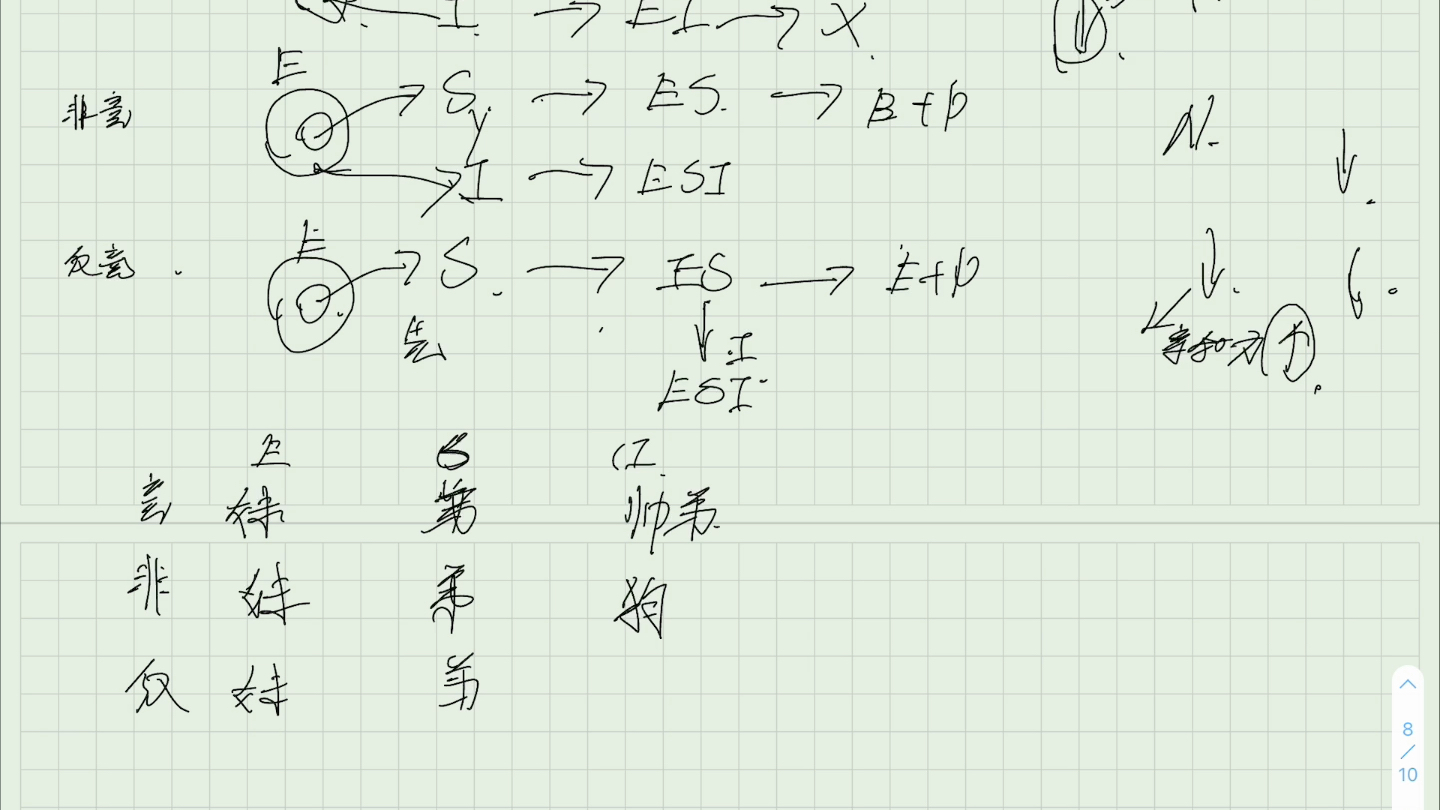 I. → EI → X.
E
非竞 S. → ES. → E + P
I → ESI
E
反竞. S. → ES → E + P
先 ↓ .I
亲和力(↑).
ESI
E S (I.
竞 妹 弟 帅弟.
非 妹 弟 狗
反 妹 弟
8
/
10